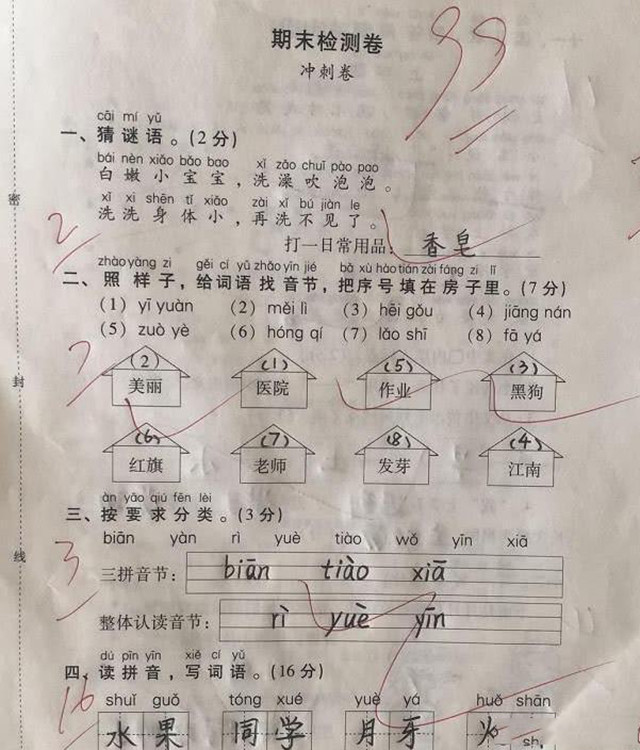 期末检测卷
98
冲刺卷
cāi mí yǔ
一、猜谜语。(2分)
bái nèn xiǎo bǎo bao xǐ zǎo chuī pào pao
白嫩小宝宝，洗澡吹泡泡。
xǐ xi shēn tǐ xiǎo zài xǐ bú jiàn le
洗洗身体小，再洗不见了。
2
打一日常用品：香皂
zhào yàng zi gěi cí yǔ zhǎo yīn jié bǎ xù hào tián zài fáng zi lǐ
二、照样子，给词语找音节，把序号填在房子里。(7分)
(1) yī yuàn (2) měi lì (3) hēi gǒu (4) jiāng nán
(5) zuò yè (6) hóng qí (7) lǎo shī (8) fā yá
7
(2) (1) (5) (3)
美丽 医院 作业 黑狗
(6) (7) (8) (4)
红旗 老师 发芽 江南
àn yāo qiú fēn lèi
三、按要求分类。(3分)
biān yàn rì yuè tiào wǒ yīn xiā
3
三拼音节： biān tiào xiā
整体认读音节： rì yuè yīn
dú pīn yīn xiě cí yǔ
四、读拼音，写词语。(16分)
16
shuǐ guǒ tóng xué yuè yá huǒ shān
水果 同学 月牙 火
密
封
线